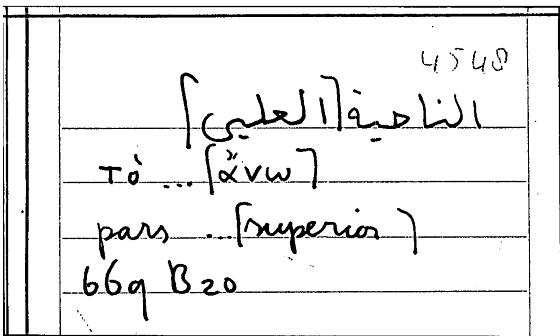 4548
الناحية [العليى]
τὸ ... [ἄνω]
pars ... [superior]
669 B20